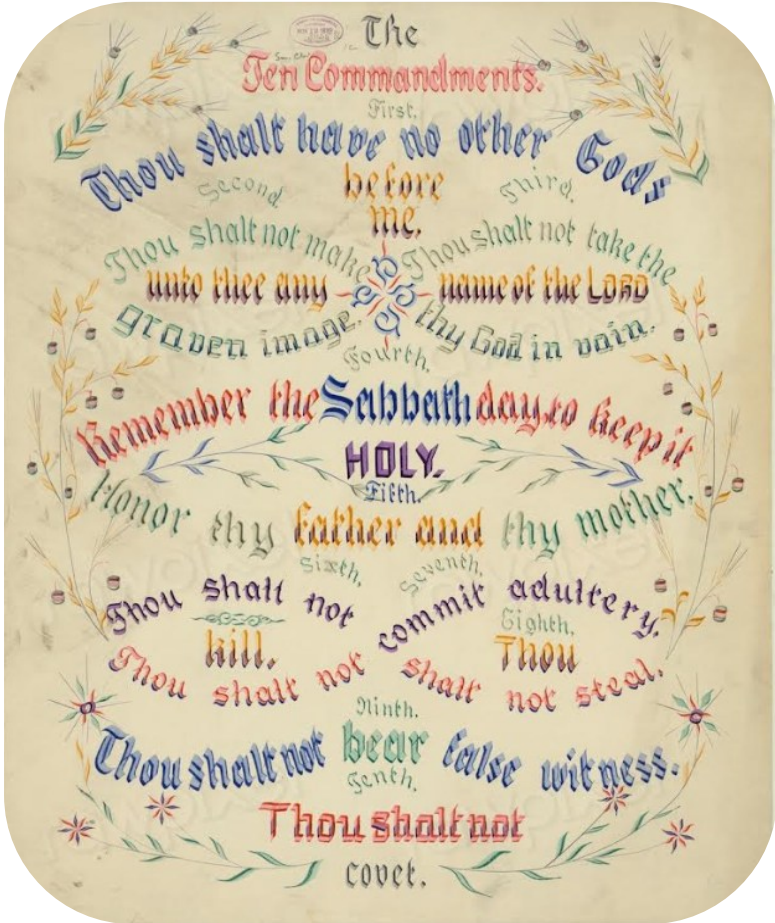 The
Ten Commandments.
First.
Thou shalt have no other Gods
before
me.
Second.
Thou shalt not make
unto thee any
graven image.
Third.
Thou shalt not take the
name of the LORD
thy God in vain.
Fourth.
Remember the Sabbath day, to keep it
HOLY.
Fifth.
Honor thy father and thy mother.
Sixth.
Thou shalt not
kill.
Seventh.
Thou shalt not commit adultery.
Eighth.
Thou
shalt not steal.
Ninth.
Thou shalt not bear false witness.
Tenth.
Thou shalt not
covet.